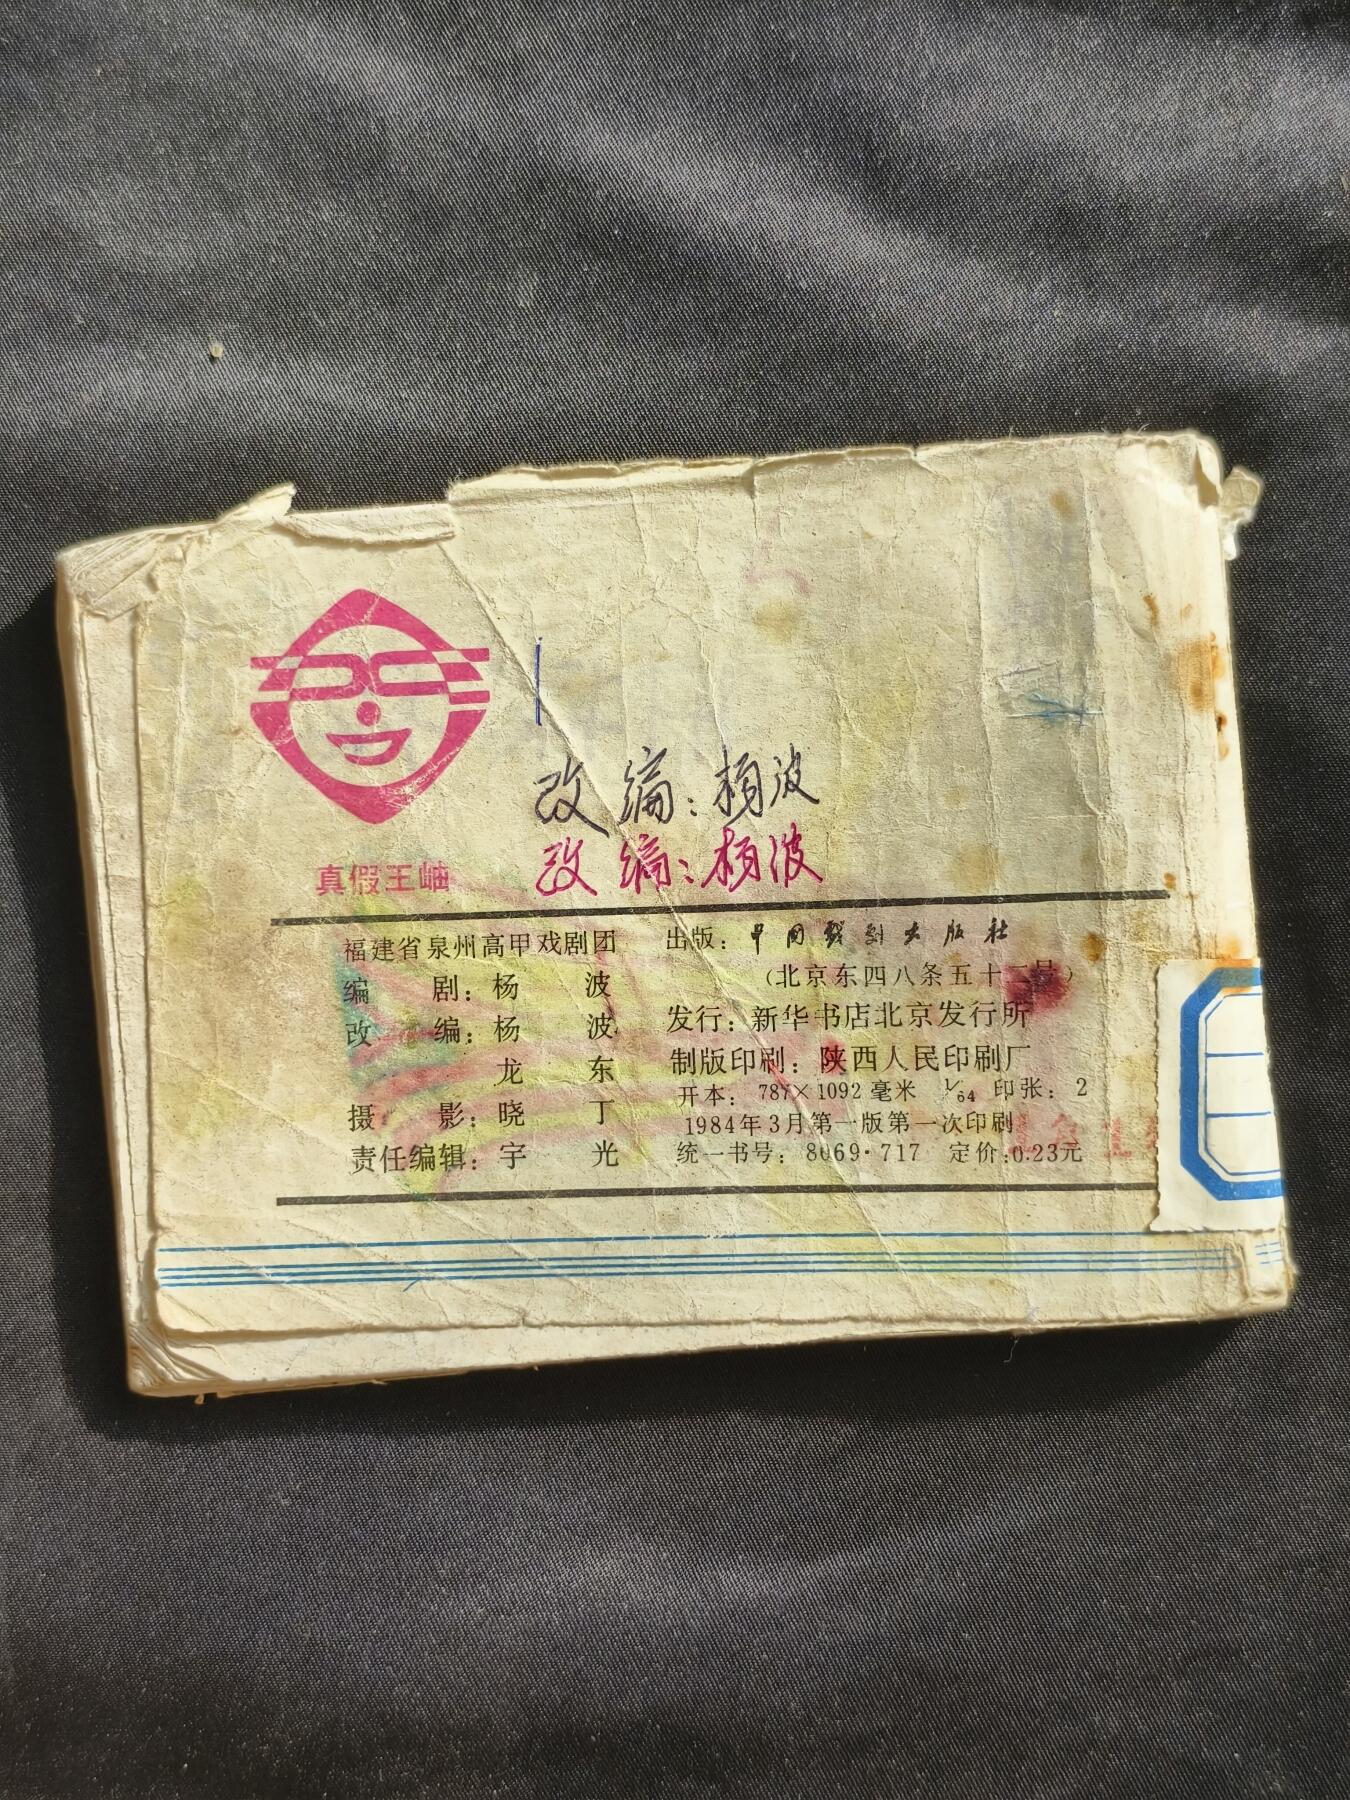 改编：杨波
改编：杨波
真假王岫
福建省泉州高甲戏剧团
编剧：杨波
改编：杨波
龙东
摄影：晓丁
责任编辑：宇光
出版：中国戏剧出版社
（北京东四八条五十二号）
发行：新华书店北京发行所
制版印刷：陕西人民印刷厂
开本：787×1092毫米 1/64 印张：2
1984年3月第一版第一次印刷
统一书号：8069·717 定价：0.23元